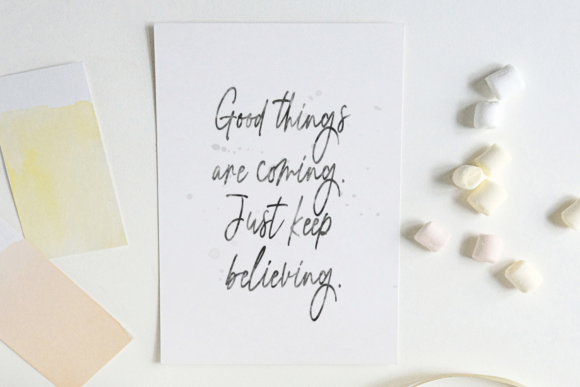 Good things
are coming.
Just keep
believing.